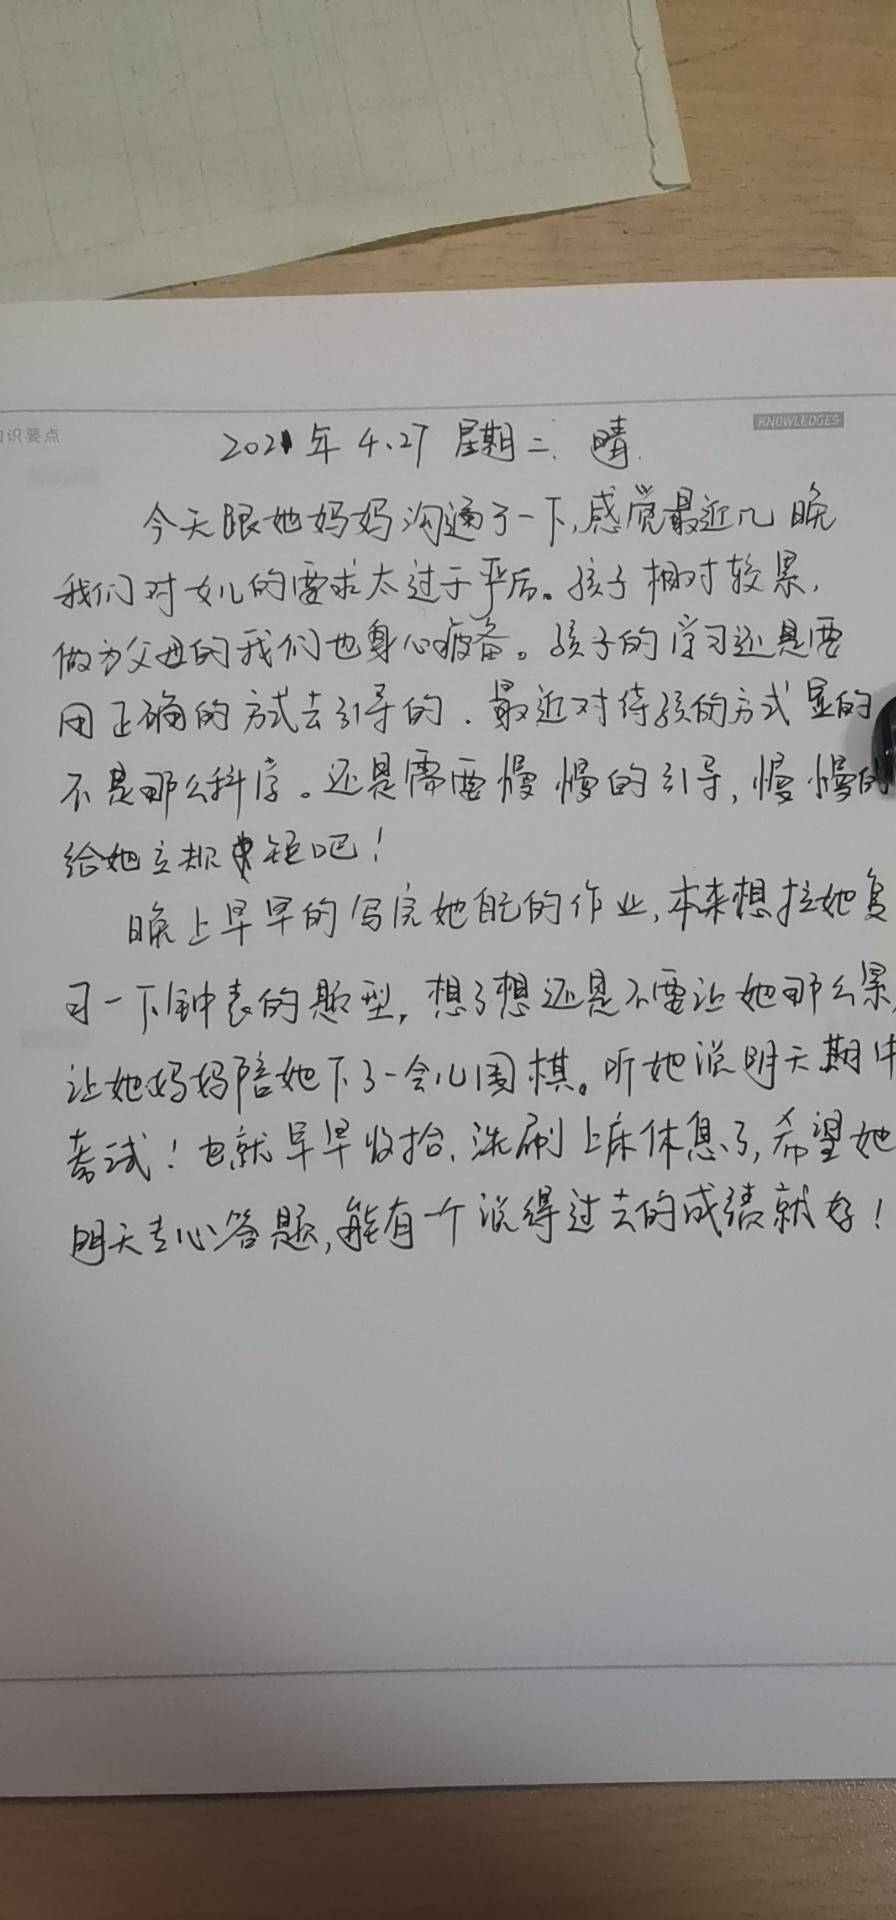 识要点
KNOWLEDGES
2021年4.27 星期二. 晴.
今天跟她妈妈沟通了一下,感觉最近几晚
我们对女儿的要求太过于严厉。孩子相对较累,
做为父母的我们也身心疲备。孩子的学习还是要
用正确的方式去引导的.最近对待孩的方式显的
不是那么科学。还是需要慢慢的引导,慢慢的
给她立规矩吧!
晚上早早的写完她自己的作业,本来想拉她复
习一下钟表的题型,想了想还是不要让她那么累,
让她妈妈陪她下了一会儿围棋。听她说明天期中
考试!也就早早收拾.洗刷上床休息了,希望她
明天专心答题,能有一个说得过去的成绩就好!